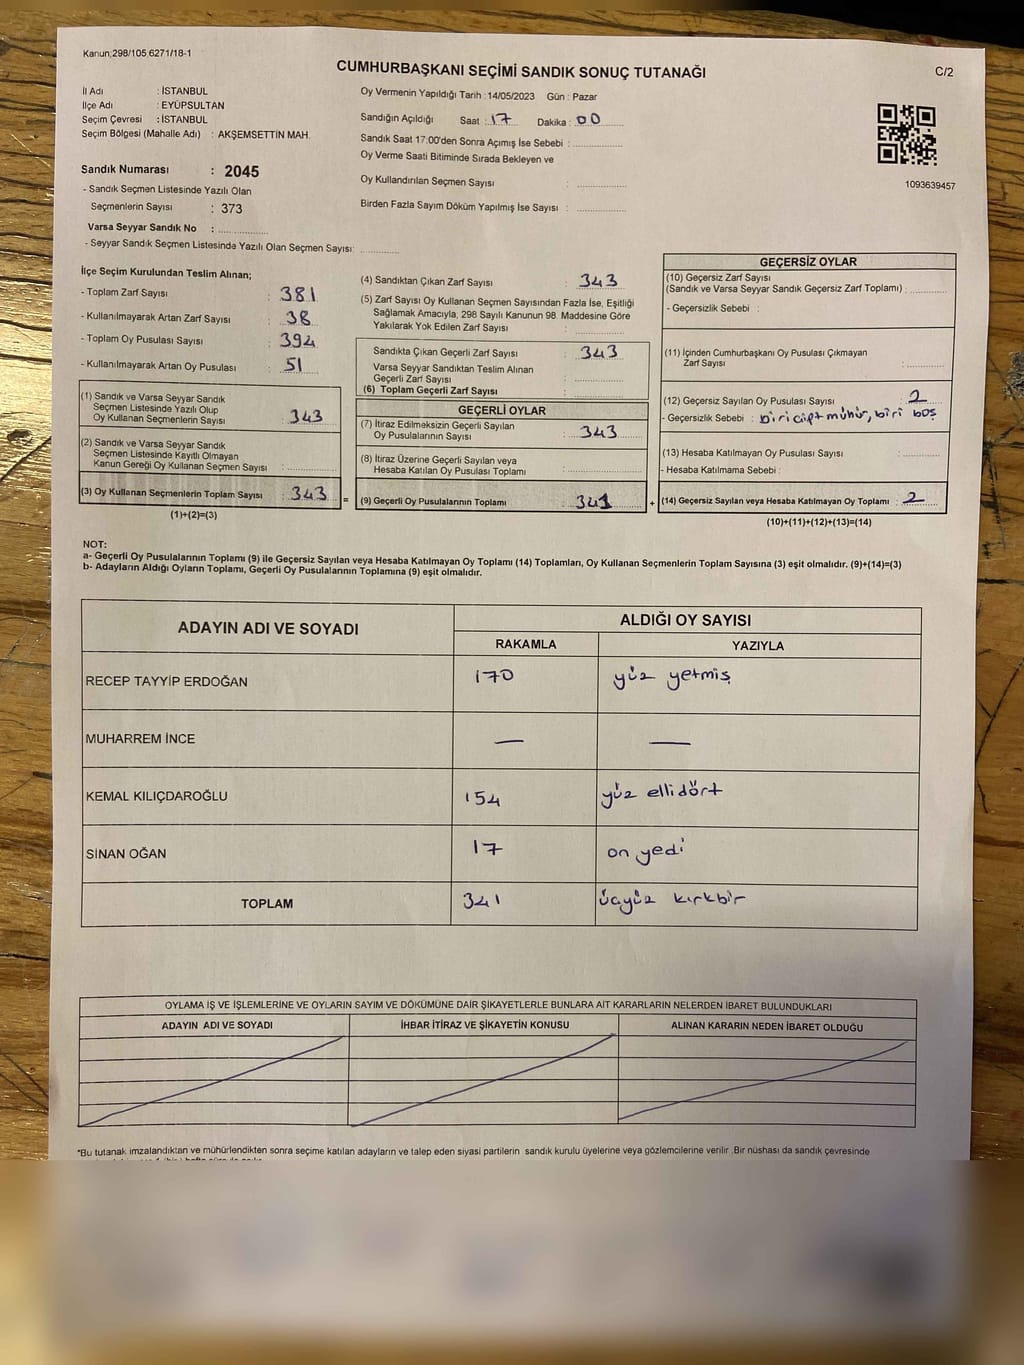 Kanun;298/105,6271/18-1
CUMHURBAŞKANI SEÇİMİ SANDIK SONUÇ TUTANAĞI
C/2
İl Adı : İSTANBUL
İlçe Adı : EYÜPSULTAN
Seçim Çevresi : İSTANBUL
Seçim Bölgesi (Mahalle Adı) : AKŞEMSETTİN MAH.
Sandık Numarası : 2045
- Sandık Seçmen Listesinde Yazılı Olan
Seçmenlerin Sayısı : 373
Varsa Seyyar Sandık No :
- Seyyar Sandık Seçmen Listesinde Yazılı Olan Seçmen Sayısı:
Oy Vermenin Yapıldığı Tarih :14/05/2023 Gün : Pazar
Sandığın Açıldığı Saat : 17 Dakika : 00
Sandık Saat 17:00'den Sonra Açımış İse Sebebi :
Oy Verme Saati Bitiminde Sırada Bekleyen ve
Oy Kullandırılan Seçmen Sayısı :
Birden Fazla Sayım Döküm Yapılmış İse Sayısı :
1093639457
İlçe Seçim Kurulundan Teslim Alınan;
- Toplam Zarf Sayısı : 381
- Kullanılmayarak Artan Zarf Sayısı : 38
- Toplam Oy Pusulası Sayısı : 394
- Kullanılmayarak Artan Oy Pusulası : 51
(1) Sandık ve Varsa Seyyar Sandık
Seçmen Listesinde Yazılı Olup
Oy Kullanan Seçmenlerin Sayısı : 343
(2) Sandık ve Varsa Seyyar Sandık
Seçmen Listesinde Kayıtlı Olmayan
Kanun Gereği Oy Kullanan Seçmen Sayısı :
(3) Oy Kullanan Seçmenlerin Toplam Sayısı : 343 =
(1)+(2)=(3)
(4) Sandıktan Çıkan Zarf Sayısı : 343
(5) Zarf Sayısı Oy Kullanan Seçmen Sayısından Fazla İse, Eşitliği
Sağlamak Amacıyla, 298 Sayılı Kanunun 98. Maddesine Göre
Yakılarak Yok Edilen Zarf Sayısı :
Sandıkta Çıkan Geçerli Zarf Sayısı : 343
Varsa Seyyar Sandıktan Teslim Alınan
Geçerli Zarf Sayısı :
(6) Toplam Geçerli Zarf Sayısı :
GEÇERLİ OYLAR
(7) İtiraz Edilmeksizin Geçerli Sayılan
Oy Pusulalarının Sayısı : 343
(8) İtiraz Üzerine Geçerli Sayılan veya
Hesaba Katılan Oy Pusulası Toplamı :
(9) Geçerli Oy Pusulalarının Toplamı : 341 +
GEÇERSİZ OYLAR
(10) Geçersiz Zarf Sayısı
(Sandık ve Varsa Seyyar Sandık Geçersiz Zarf Toplamı) :
- Geçersizlik Sebebi :
(11) İçinden Cumhurbaşkanı Oy Pusulası Çıkmayan
Zarf Sayısı :
(12) Geçersiz Sayılan Oy Pusulası Sayısı : 2
- Geçersizlik Sebebi : biri çift mühür, biri boş
(13) Hesaba Katılmayan Oy Pusulası Sayısı :
- Hesaba Katılmama Sebebi :
(14) Geçersiz Sayılan veya Hesaba Katılmayan Oy Toplamı : 2
(10)+(11)+(12)+(13)=(14)
NOT:
a- Geçerli Oy Pusulalarının Toplamı (9) ile Geçersiz Sayılan veya Hesaba Katılmayan Oy Toplamı (14) Toplamları, Oy Kullanan Seçmenlerin Toplam Sayısına (3) eşit olmalıdır. (9)+(14)=(3)
b- Adayların Aldığı Oyların Toplamı, Geçerli Oy Pusulalarının Toplamına (9) eşit olmalıdır.
ADAYIN ADI VE SOYADI ALDIĞI OY SAYISI
RAKAMLA YAZIYLA
RECEP TAYYİP ERDOĞAN 170 yüz yetmiş
MUHARREM İNCE — —
KEMAL KILIÇDAROĞLU 154 yüz ellidört
SİNAN OĞAN 17 on yedi
TOPLAM 341 üçyüz kırkbir
OYLAMA İŞ VE İŞLEMLERİNE VE OYLARIN SAYIM VE DÖKÜMÜNE DAİR ŞİKAYETLERLE BUNLARA AİT KARARLARIN NELERDEN İBARET BULUNDUKLARI
ADAYIN ADI VE SOYADI İHBAR İTİRAZ VE ŞİKAYETİN KONUSU ALINAN KARARIN NEDEN İBARET OLDUĞU
*Bu tutanak imzalandıktan ve mühürlendikten sonra seçime katılan adayların ve talep eden siyasi partilerin sandık kurulu üyelerine veya gözlemcilerine verilir .Bir nüshası da sandık çevresinde